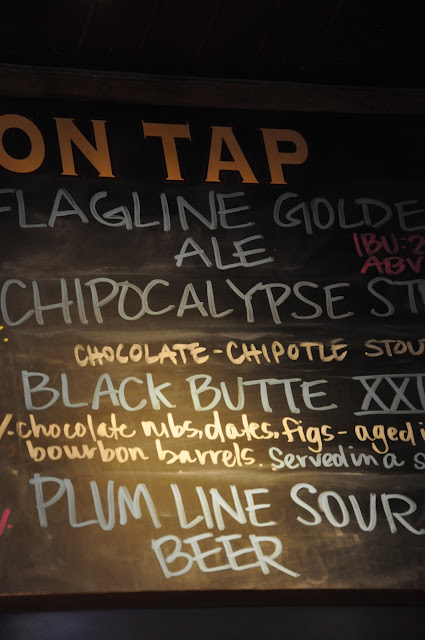 ON TAP
FLAGLINE GOLDE
ALE IBU:2
ABV
CHIPOCALYPSE ST
CHOCOLATE-CHIPOTLE STOU
BLACK BUTTE XXI
%. chocolate nibs, dates, figs - aged i
bourbon barrels. Served in a s
% PLUM LINE SOUR
BEER